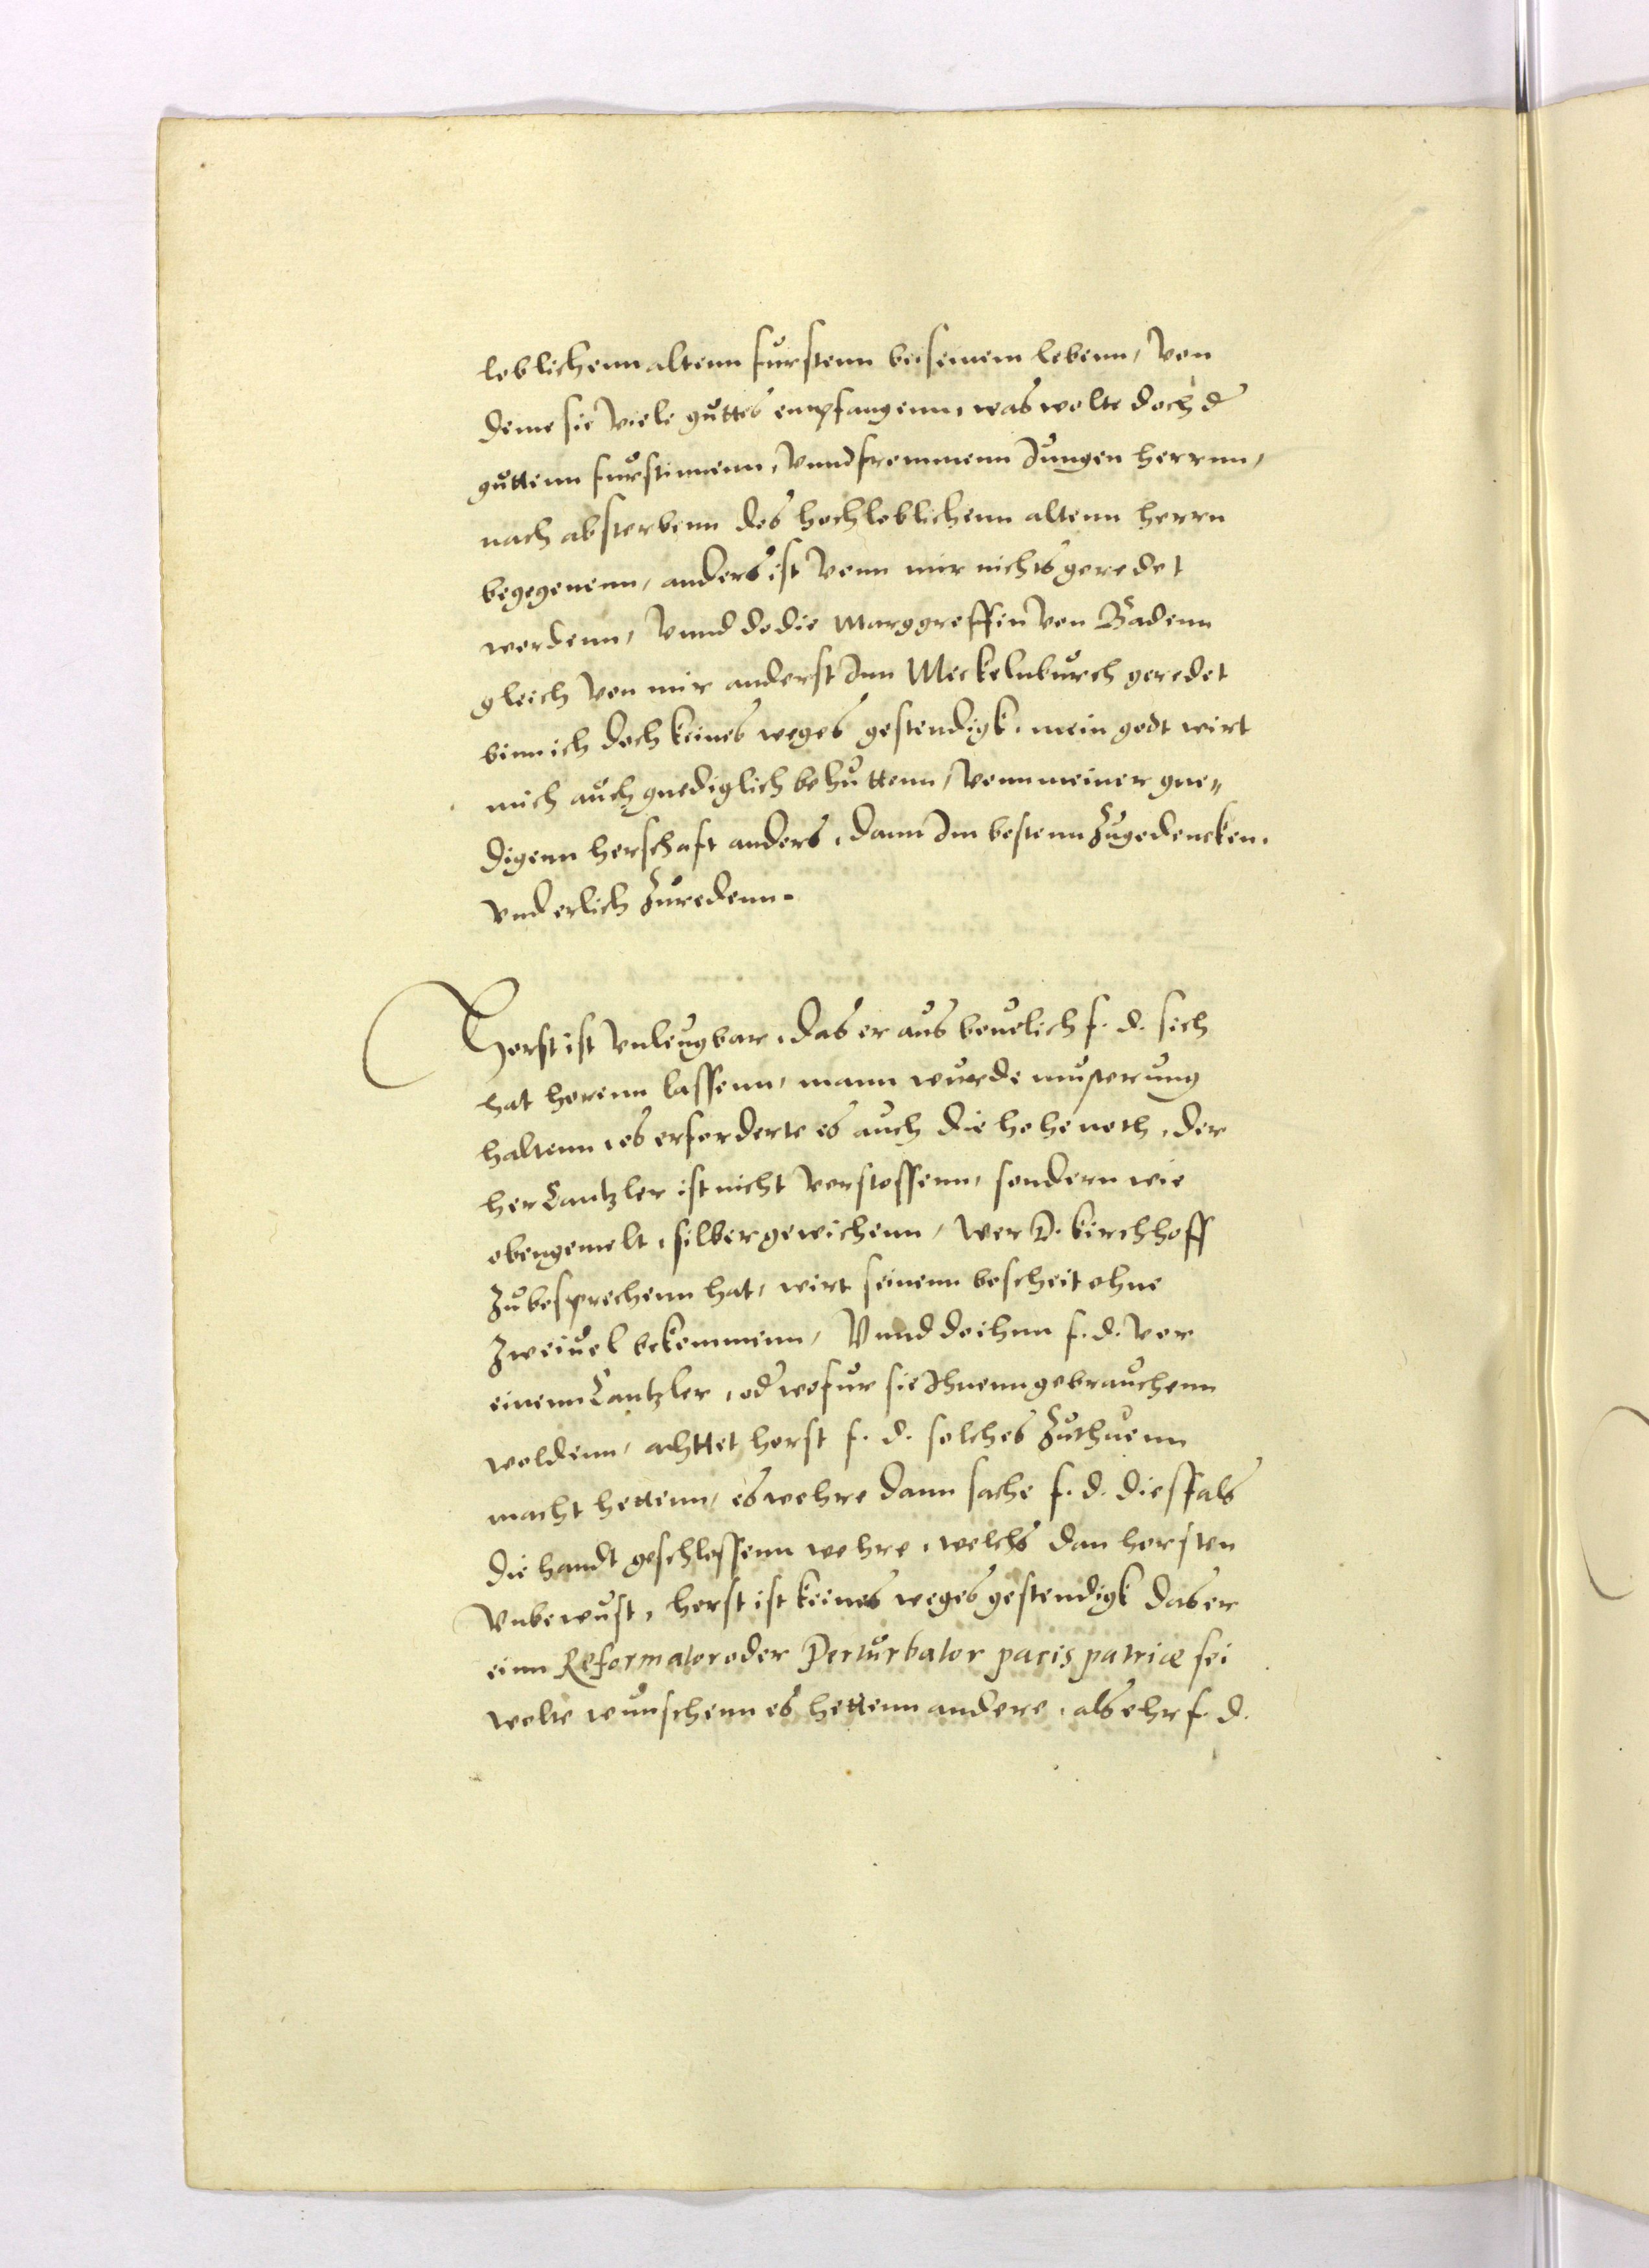 loblichenn altenn furstenn bei seinem lebenn, von
deme sie viele guttes empfangenn, was wolte doch d
guttenn furstinnenn, vnnd frommenn Jungen herrnn,
nach absterbenn des hochloblichenn altenn herrn
begegenenn, anders ist vonn mir nichts geredet
wordenn, vnnd do die Marggreffin von Badenn
gleich von mir anderst Inn Meckelnburch geredet
binn ich doch keines weges gestendigk, mein godt wirt
mich auch gnediglich behuttenn, vonn meiner gne„
digenn herschaft anders, dann Im bestenn zugedencken,
vnd erlich zuredenn.
Horst ist vnleugbar, das er aus beuelich f. d. sich
hat horenn lassenn, mann wurde musterung
haltenn, es erforderte es auch die hohe noth, der
her Cantzler ist nicht verstossenn, sondern wie
obengemelt, silber gewichenn, wer D. Kirchhoff
zubesprechenn hat, wirt seinenn bescheit ohne
zweiuel bekommenn, Vnnd do ihnn f. d. vor
einenn Cantzler, od wofur sie Ihnenn gebrauchenn
woldenn, achttet horst f. d. solches zuthuenn
macht hettenn, es wehre dann sache f. d. diesfals
die handt geschlossenn wehre, welchs dan horsten
vnbewust, horst ist keines weges gestendigk das er
einn Reformator oder Perturbator pacis patriæ sei
wolte wunschenn es hettenn andere, als ehr f. d.